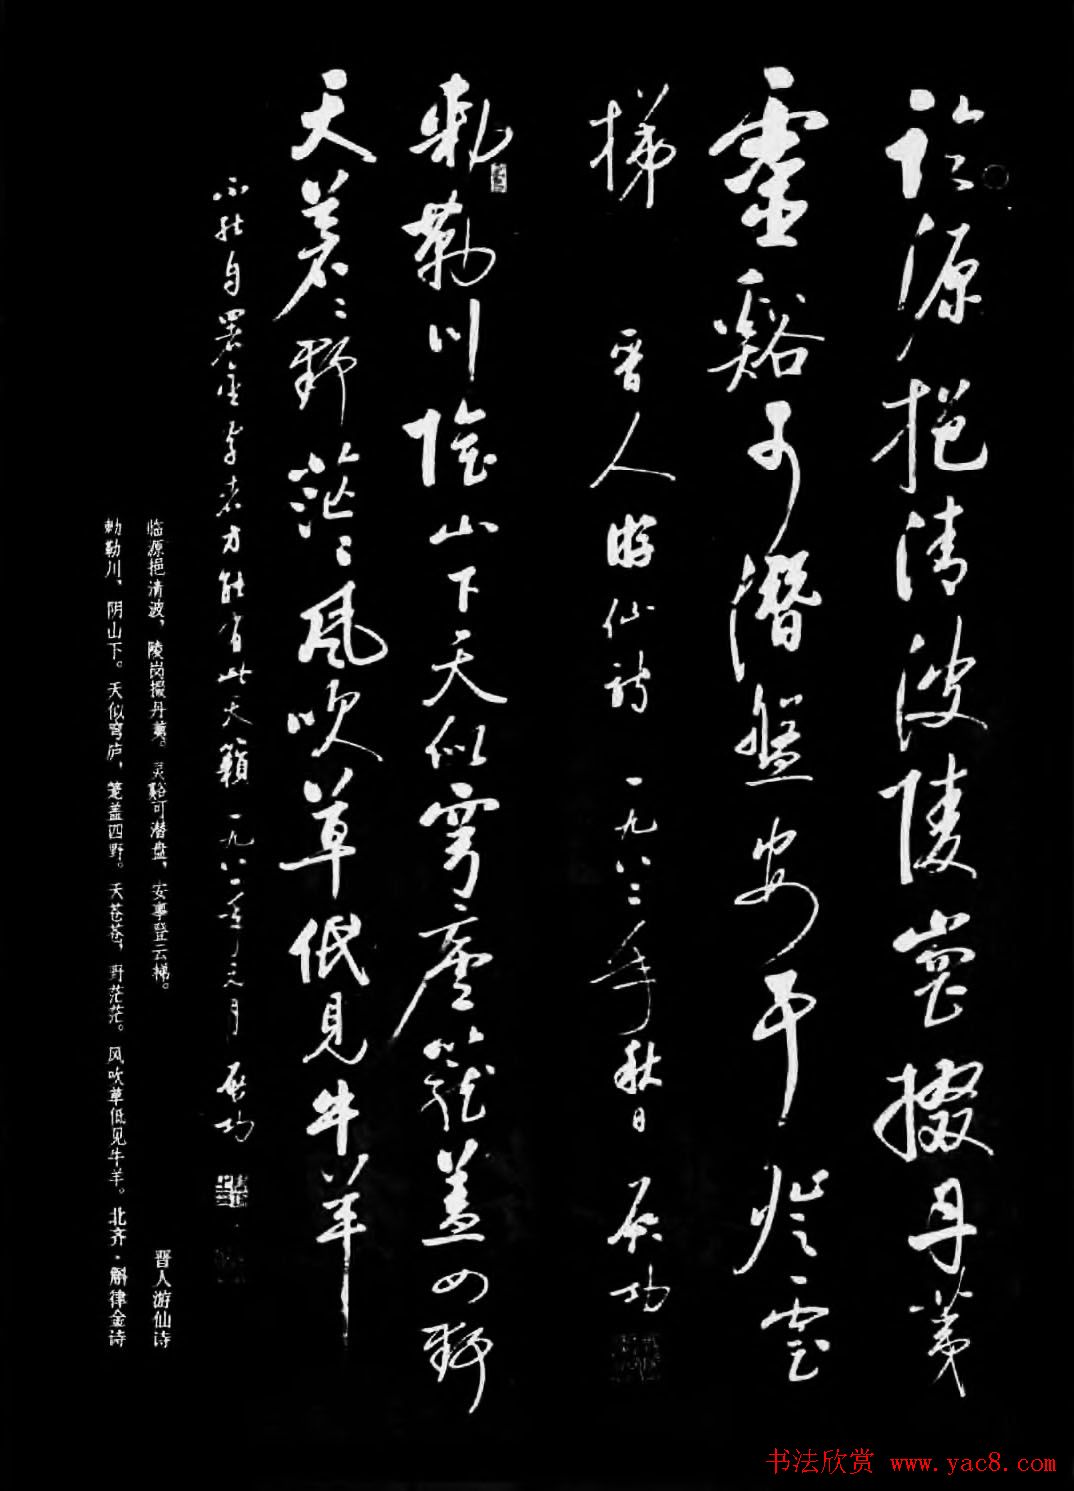 臨源挹清波陵崗掇丹荑
靈谿可潛盤安事登雲
梯 晋人游仙詩 一九八二年秋日 启功
敕勒川陰山下天似穹廬籠蓋四野
天蒼〻野茫〻風吹草低見牛羊
不能自署金字者方能有此天籟 一九八二年元月 启功
临源挹清波，陵岗掇丹荑。灵谿可潜盘，安事登云梯。 晋人游仙诗
勅勒川，阴山下。天似穹庐，笼盖四野。天苍苍，野茫茫。风吹草低见牛羊。北齐·斛律金诗
书法欣赏 www.yac8.com